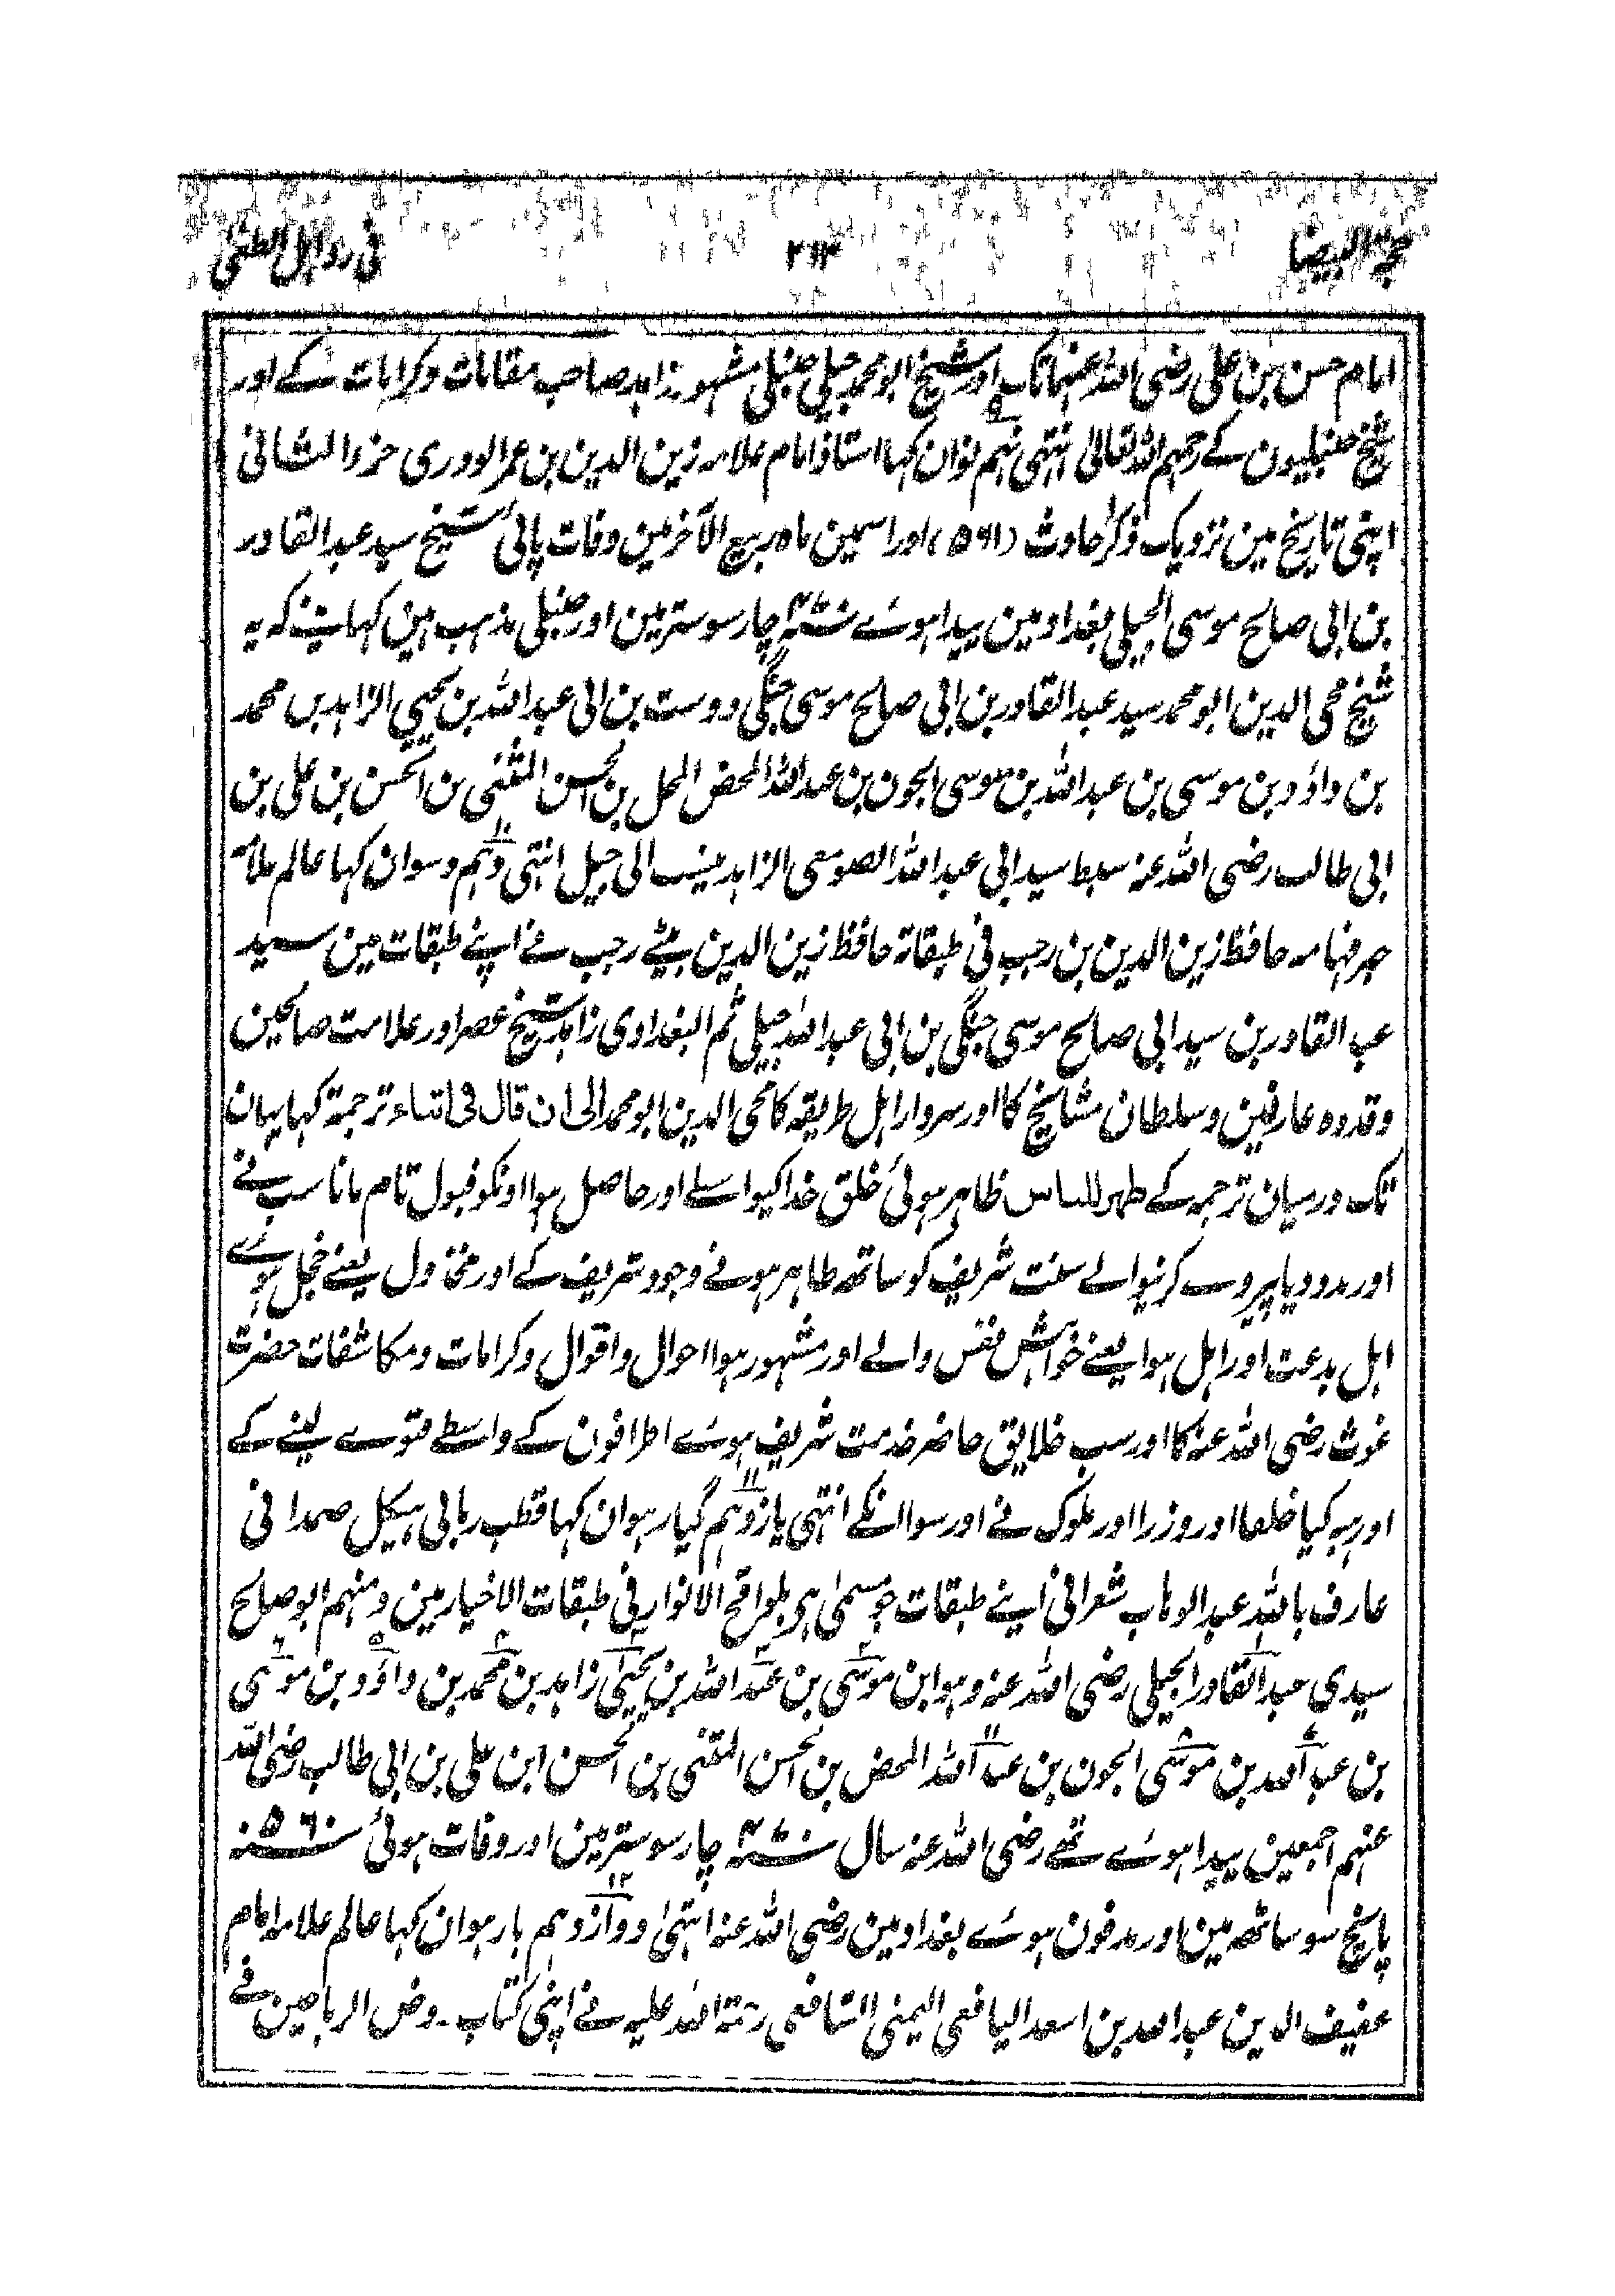 حجۃ البیضا ۲۱۳ فی رد اہل الطغی
امام حسن بن علی رضی اللہ عنہما تک اور شیخ ابو محمد جیلی حنبلی مشہور زاہد صاحب مقامات وکرامات کے اور
شیخ حنبلیون کے رحمہم اللہ تعالیٰ انتہی نہم نوان کہا استاذ امام علامہ زین الدین بن عمر الوردی جزء الثانی
اپنی تاریخ مین نزدیک ذکر حادث (۵۶۱) اور اسمین ماہ ربیع الآخر مین وفات پائی شیخ سید عبد القادر
بن ابی صالح موسی الجیلی بغداد مین پیدا ہوئے سنہ ۴۷۰ چار سو ستر مین اور حنبلی مذہب ہین کہا کہ یہ
شیخ محی الدین ابو محمد سید عبد القادر بن ابی صالح موسی جنگی دوست بن ابی عبد اللہ بن یحیی الزاہد بن محمد
بن داؤد بن موسی بن عبد اللہ بن موسی الجون بن عبد اللہ المحض المحل بن الحسن المثنی بن الحسن بن علی بن
ابی طالب رضی اللہ عنہ سبط سید ابی عبد اللہ الصومعی الزاہد ینسب الی جیل انتہی دہم دسوان کہا عالم علامہ
حبر فہامہ حافظ زین الدین بن رجب فی طبقاتہ حافظ زین الدین بیٹے رجب نے اپنے طبقات مین سید
عبد القادر بن سید ابی صالح موسی جنگی بن ابی عبد اللہ جیلی ثم البغدادی زاہد شیخ عصر اور علامت صالحین
وقدوہ عارفین وسلطان مشائخ کا اور سردار اہل طریقہ کا محی الدین ابو محمد الی ان قال فی اثناء ترجمۃ کہا یہان
تک درمیان ترجمہ کے ظہر للناس ظاہر ہوئی خلق خدا کیواسطے اور حاصل ہوا اونکو قبول تام مانا سب نے
اور مدد دیا پیروے کرنیوالے سنت شریف کو ساتھ ظاہر ہونے وجود شریف کے اور مخذول یعنے خجل ہوے
اہل بدعت اور اہل ہوا یعنے خواہش نفس والے اور مشہور ہوا احوال واقوال وکرامات ومکاشفات حضرت
غوث رضی اللہ عنہ کا اور سب خلایق حاضر خدمت شریف ہوئے اطرافون کے واسطے فتوے لینے کے
اور ہبہ کیا خلفا اور وزرا اور ملوک نے اور سوا انکے انتہی یازدہم گیارہوان کہا قطب ربانی ہیکل صمدانی
عارف باللہ عبد الوہاب شعرانی اپنے طبقات جو مسمیٰ ہی بلواقح الانوار فی طبقات الاخیار مین ومنہم ابو صالح
سیدی عبد القادر الجیلی رضی اللہ عنہ وہو ابن موسی بن عبد اللہ بن یحیی زاہد بن محمد بن داؤد بن موسی
بن عبد اللہ بن موسی الجون بن عبد اللہ المحض بن الحسن المثنی بن الحسن ابن علی بن ابی طالب رضی اللہ
عنہم اجمعین پیدا ہوئے تھے رضی اللہ عنہ سال سنہ ۴۷۰ چار سو ستر مین اور وفات ہوئی سنہ ۵۶۰
پانچ سو ساٹھ مین اور مدفون ہوئے بغداد مین رضی اللہ عنہ انتہیٰ دوازدہم بارہوان کہا عالم علامہ امام
عفیف الدین عبد اللہ بن اسعد الیافعی الیمنی الشافعی رحمۃ اللہ علیہ نے اپنی کتاب روض الریاحین فے